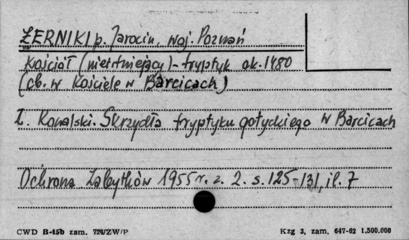 ŻERNIKI p. Jarocin, woj. Poznań
Kościół (nieistniejący) - tryptyk ok. 1480
(ob. w Kościele w Barcicach)
Z. Kowalski. Skrzydła tryptyku gotyckiego w Barcicach
Ochrona Zabytków 1955 r. z. 2. s. 125-131, il. 7
CWD B-15b zam. 724/ZW/P
Kzg 3, zam. 647-62 1,500,000